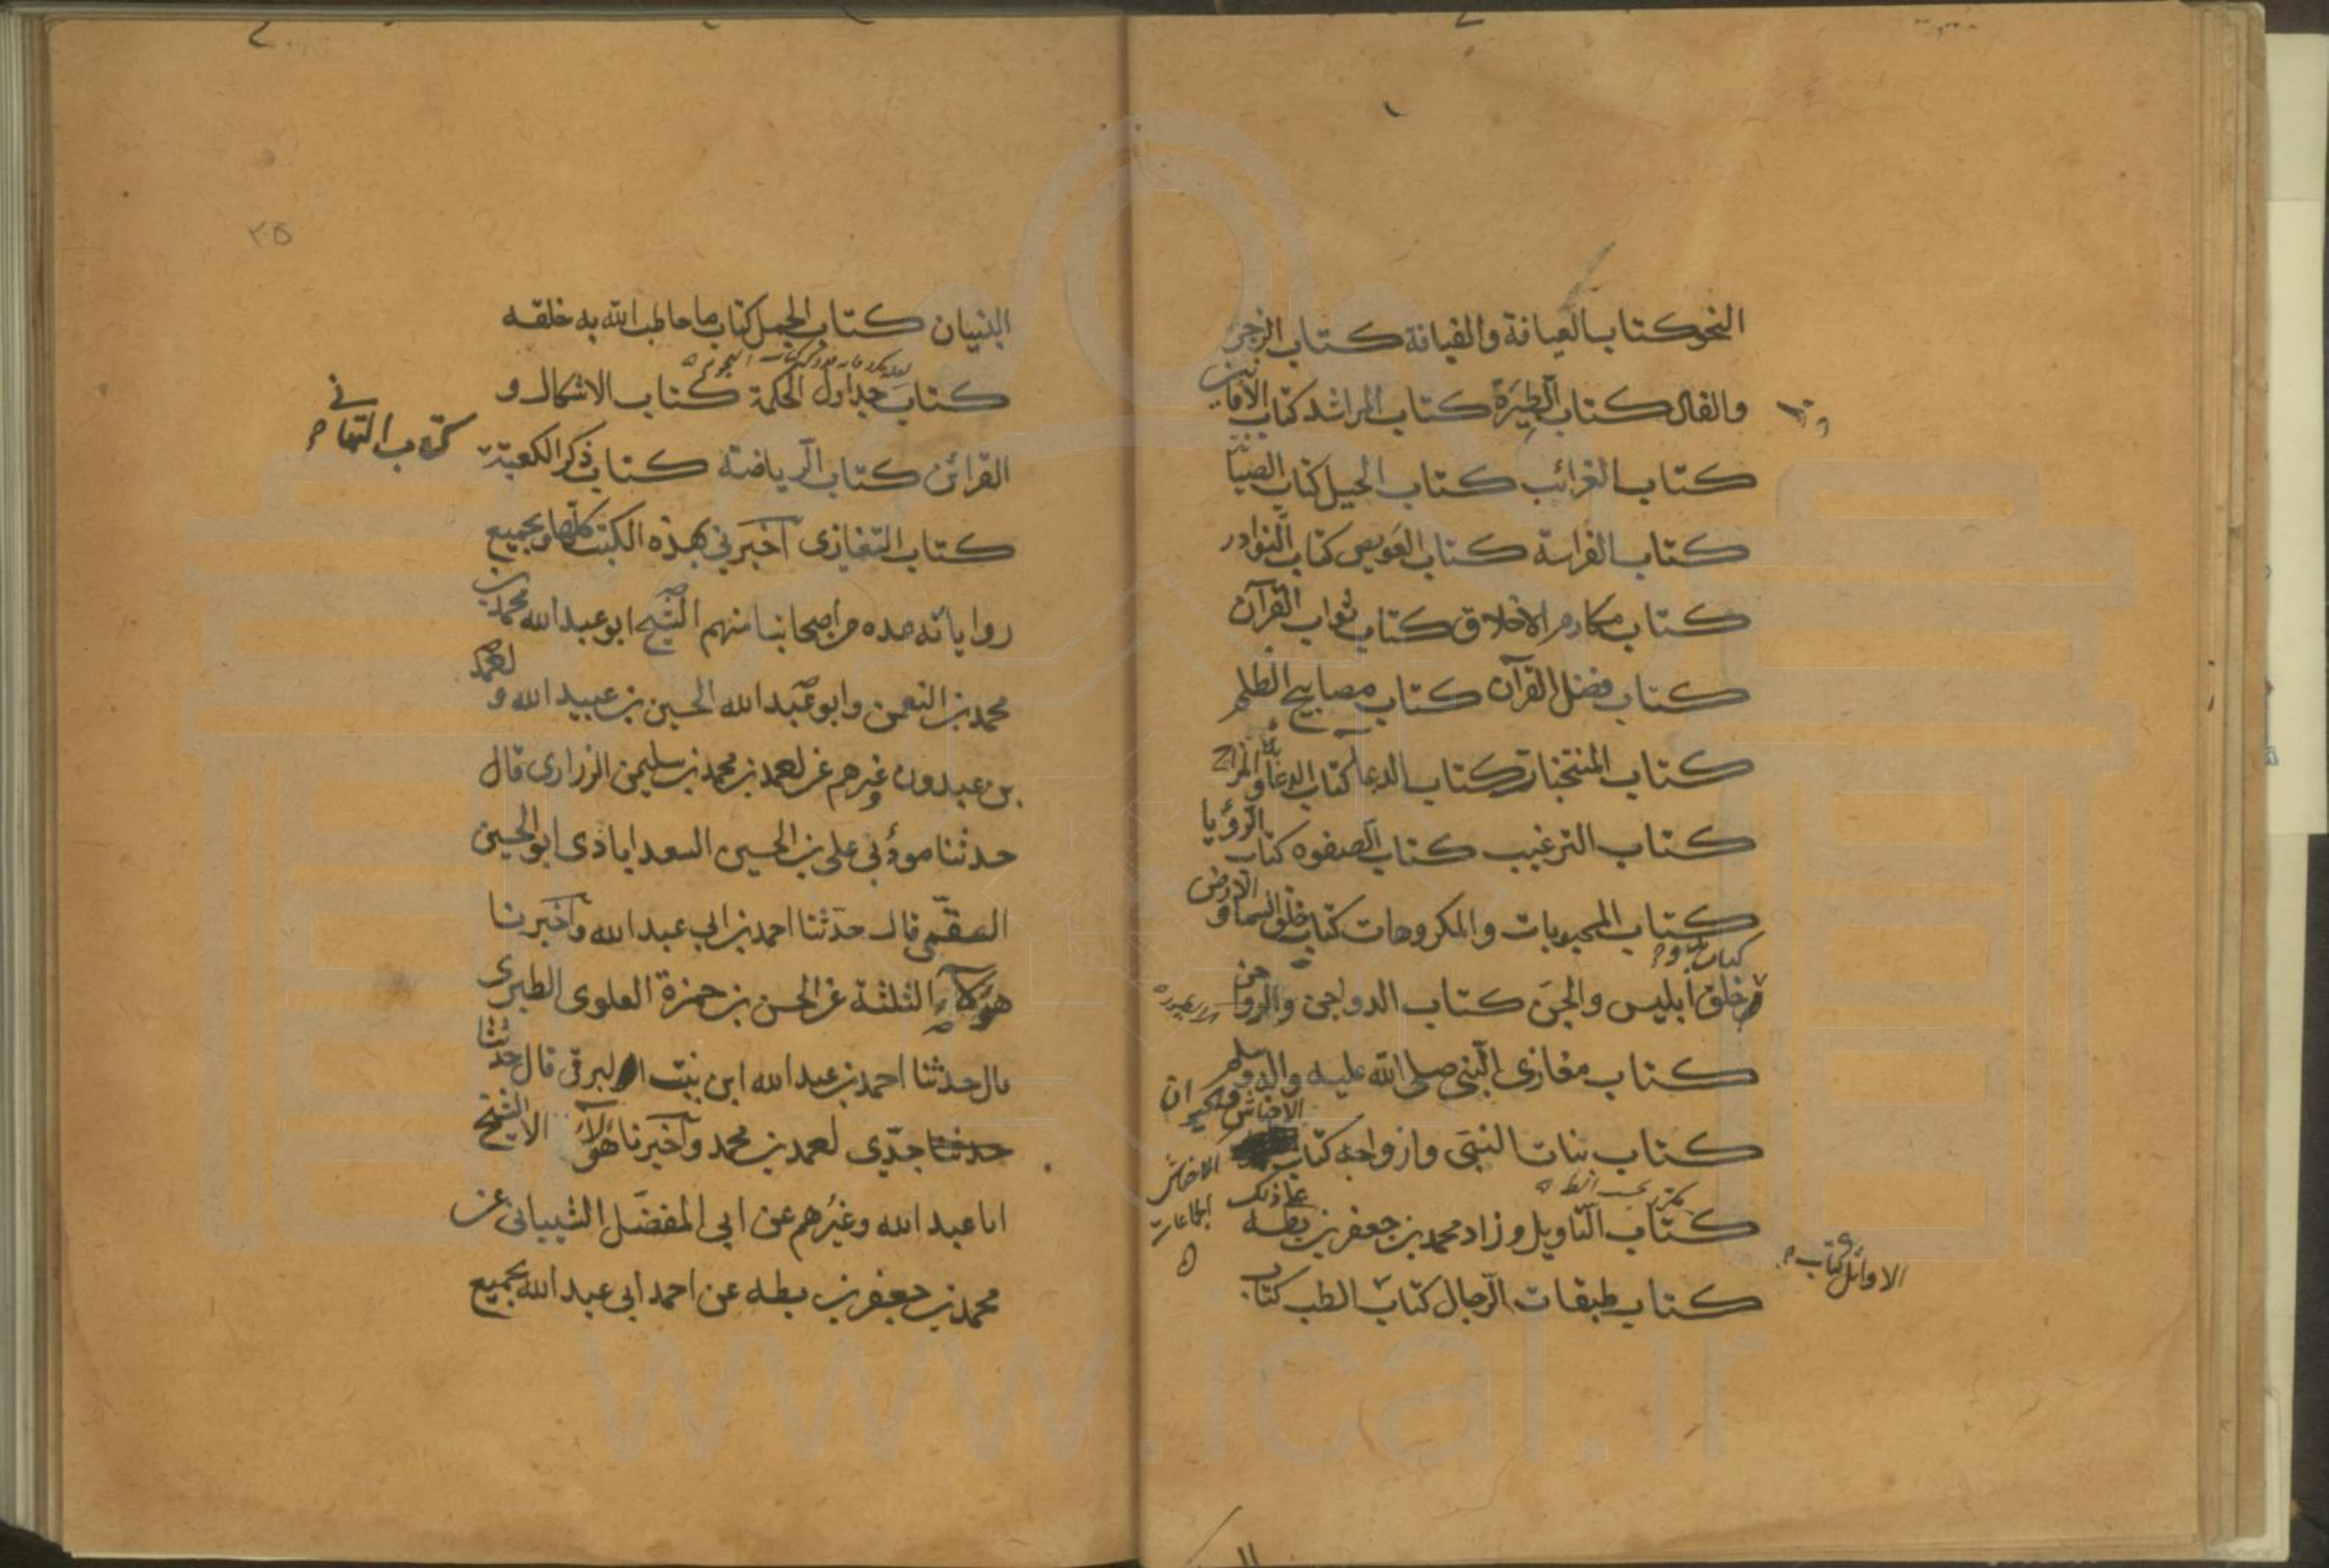 النحو كتاب العيافة والقيافة كتاب الزجر
والفال كتاب الطيرة كتاب المراشد كتاب الافانين
كتاب الغرائب كتاب الحيل كتاب الصيا
كتاب الفراسة كتاب العويص كتاب النوادر
كتاب مكارم الاخلاق كتاب ثواب القرآن
كتاب فضل القرآن كتاب مصابيح الظلم
كتاب المنتخبات كتاب الدعا كتاب الدعابة والمزاح
كتاب الترغيب كتاب الصفوه كتاب الرؤيا
كتاب المحبوبات والمكروهات كتاب خلق السما و الارض
كتاب
خلق ابليس والجن كتاب الدواجن والرواجن
كتاب مغازى النبي صلى الله عليه واله وسلم
كتاب بنات النبي وازواجه كتاب
الاحناش
كتاب التاويل وزاد محمد بن جعفر بن بطه
على ذلك
الاوائل كتاب
كتاب طبقات الرجال كتاب الطب كتاب
٢٥
البنيان كتاب الجمل كتاب ما خاطب الله به خلقه
كتاب جداول الحكمة كتاب الاشكال و
القرائن كتاب الرياضة كتاب ذكر الكعبة
كتاب التهانى
كتاب التغازى اخبرني بهذه الكتب كلها وبجميع
رواياته عده من اصحابنا منهم الشيخ ابو عبدالله محمد بن
محمد بن النعمن وابو عبدالله الحسين بن عبيد الله و احمد
بن عبدون وغيرهم عن احمد بن محمد بن سليمن الزرارى قال
حدثنا مودبي على بن الحسين السعداباذى ابو الحسين
القمي قال حدثنا احمد بن ابي عبد الله واخبرنا
هؤلاء الثلثة عن الحسن بن حمزة العلوى الطبرى
قال حدثنا احمد بن عبدالله ابن بنت البرقى قال حدثنا
جدّي احمد بن محمد واخبرنا هؤلاء الا الشيخ
ابا عبد الله وغيرهم عن ابي المفضل الشيبانى عن
محمد بن جعفر بن بطه عن احمد ابى عبد الله بجميع
www.ical.ir